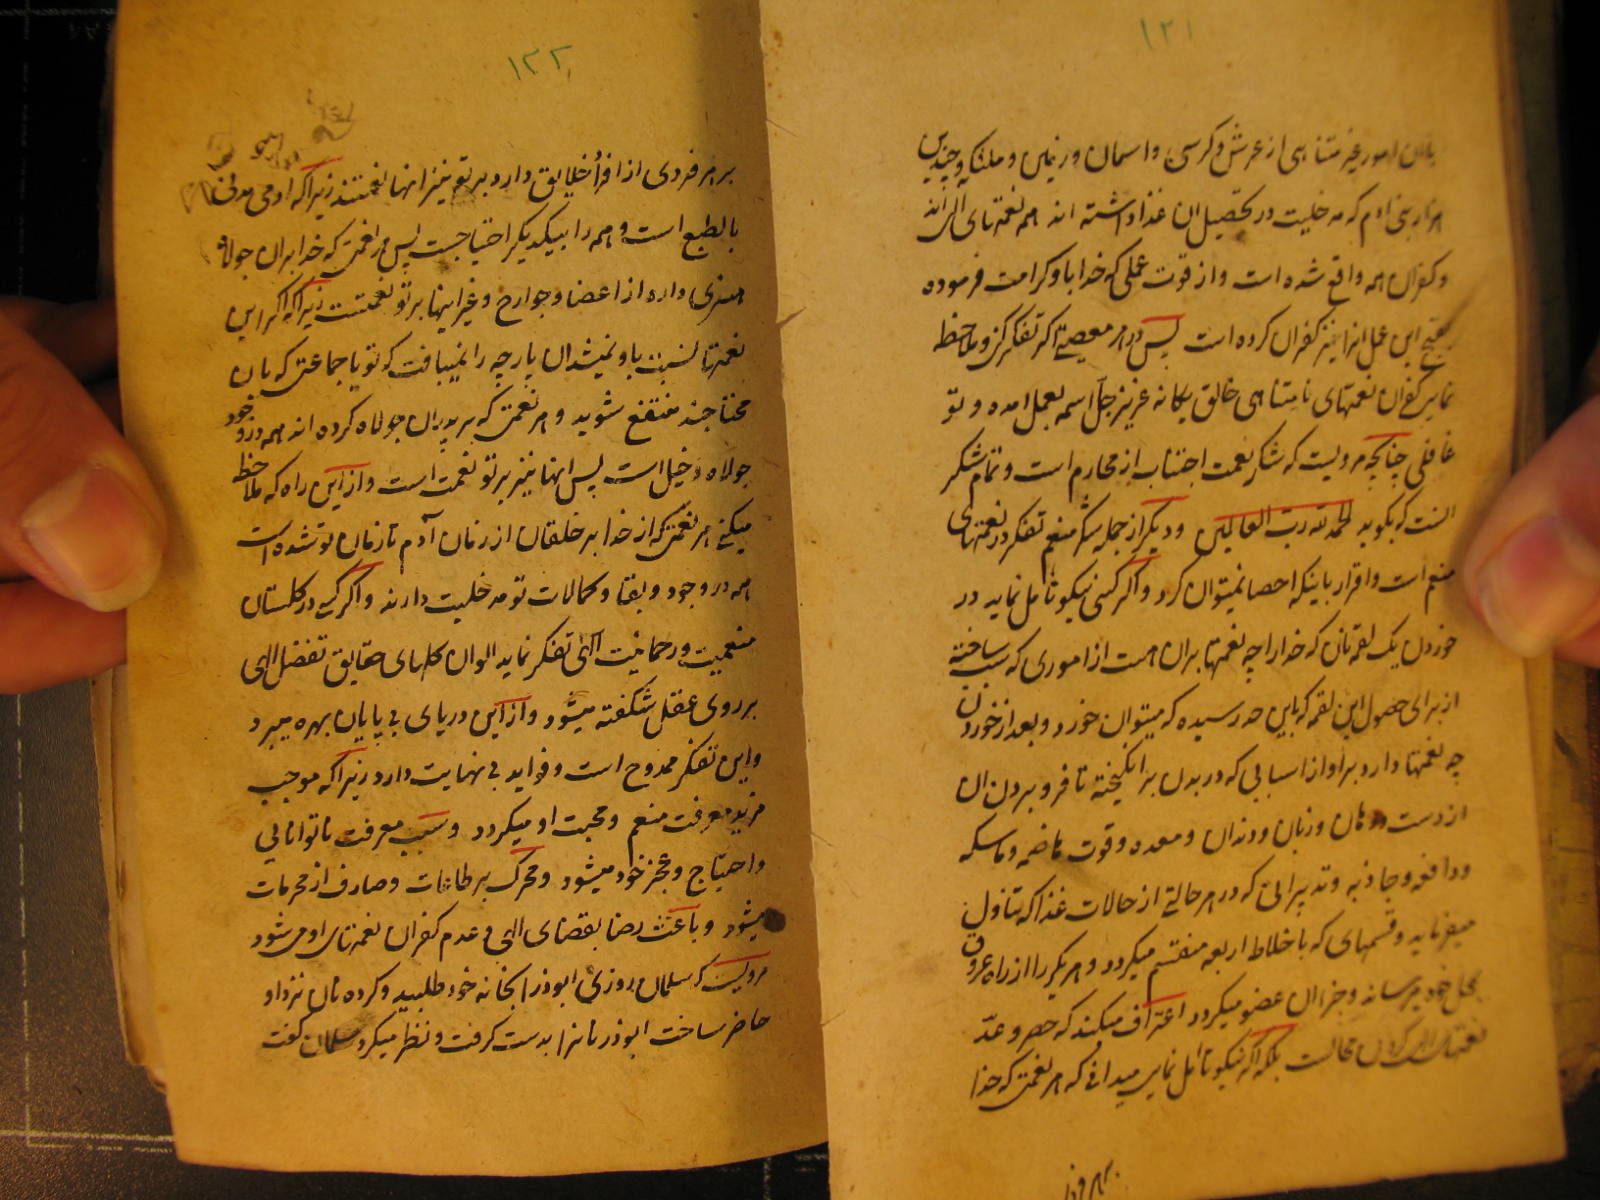 ۱۲۱
بان امور غیر متناهی از عرش و کرسی و اسمان و زمین و ملئکه و چندین
هزار بنی ادم که مدخلیت در تحصیل ان غذا داشته اند همه نعمتهای الله
و کفران همه واقع شده است و از قوت عملی که خدا باو کرامت فرموده
این عمل انرا نیز کفران کرده است پس در هر معصیتی اکر تفکر کنی و ملاحظه
نمایی کفران نعمتهای نامتناهی خالق یکانه عزیز جل اسمه بعمل امده و تو
غافلی چنانچه مرویست که شکر نعمت اجتناب از محارم است و تمام شکر
انست که بکوید الحمد لله رب العالمین و دیکر از جمله شکر منعم تفکر در نعمتهای
منعم است و اقرار باینکه احصا نمیتوان کرد و اکر کسی نیکو تامل نماید در
خوردن یک لقمه نان که خدا را چه نعمتها بران هست از اموری که ساخته
از برای حصول این لقمه که باین حد رسیده که میتوان خورد و بعد از خوردن
چه نعمتها دارد براو از اسبابی که در بدن برانکیخته تا فرو بردن ان
از دست و دهان و زبان و دندان و معده و قوت هاضمه و ماسکه
و دافعه و جاذبه و تدبیراتی که در هر حالتی از حالات غذا که تناول
میفرماید و قسمهای که باخلاط اربعه منقسم میکردد و هر یکرا از راه عروق
بمحل خود میرساند و جزء ان عضو میکردد اعتراف میکند که حصر و عد
نعمتهای الهی کردن محالست بلکه اکر نیکو تامل نمایی میدانی که هر نعمتی که خدا
بر هر فردی
۱۲۲
بر هر فردی از افراد خلایق دارد بر تو نیز انها نعمتند زیرا که ادمی مدنی
بالطبع است و همه را بیکدیکر احتیاجست پس هر نعمتی که خدا بران جولاه
هندی داره از اعضا و جوارح و غیر اینها بر تو نعمتست زیرا که اکر این
نعمتها نسبت باو نمیشد ان پارچه را نمیبافت که تو یا جماعتی که بان
محتاجند منتفع شوید و هر نعمتی که بر پدران جولاه کرده اند همه در وجود
جولاه دخیل است پس اینها نیز بر تو نعمت است و از این راه که ملاحظه
میکنی هر نعمتی که از خدا بر خلقان از زمان آدم تا زمان تو شده است
همه در وجود و بقا و کمالات تو مدخلیت دارند و اکر کسی در کلستان
منعمیت و رحمانیت الهی تفکر نماید الوان کلهای حقایق تفضل الهی
بر روی عقلی شکفته میشود و از این دریای بی پایان بهره میبرد
و این تفکر ممدوح است و فواید بی نهایت دارد زیرا که موجب
مزید معرفت منعم و محبت او میکردد و سبب معرفت ناتوانایی
و احتیاج و عجز خود میشود و محرک بر طاعات و صارف از محرمات
میشود و باعث رضا بقضای الهی و عدم کفران نعمتهای او می شود
مرویست که سلمان روزی ابوذر را بخانه خود طلبید و کرده نان نزد او
حاضر ساخت ابوذر نانرا بدست کرفت و نظر میکرد سلمان کفت